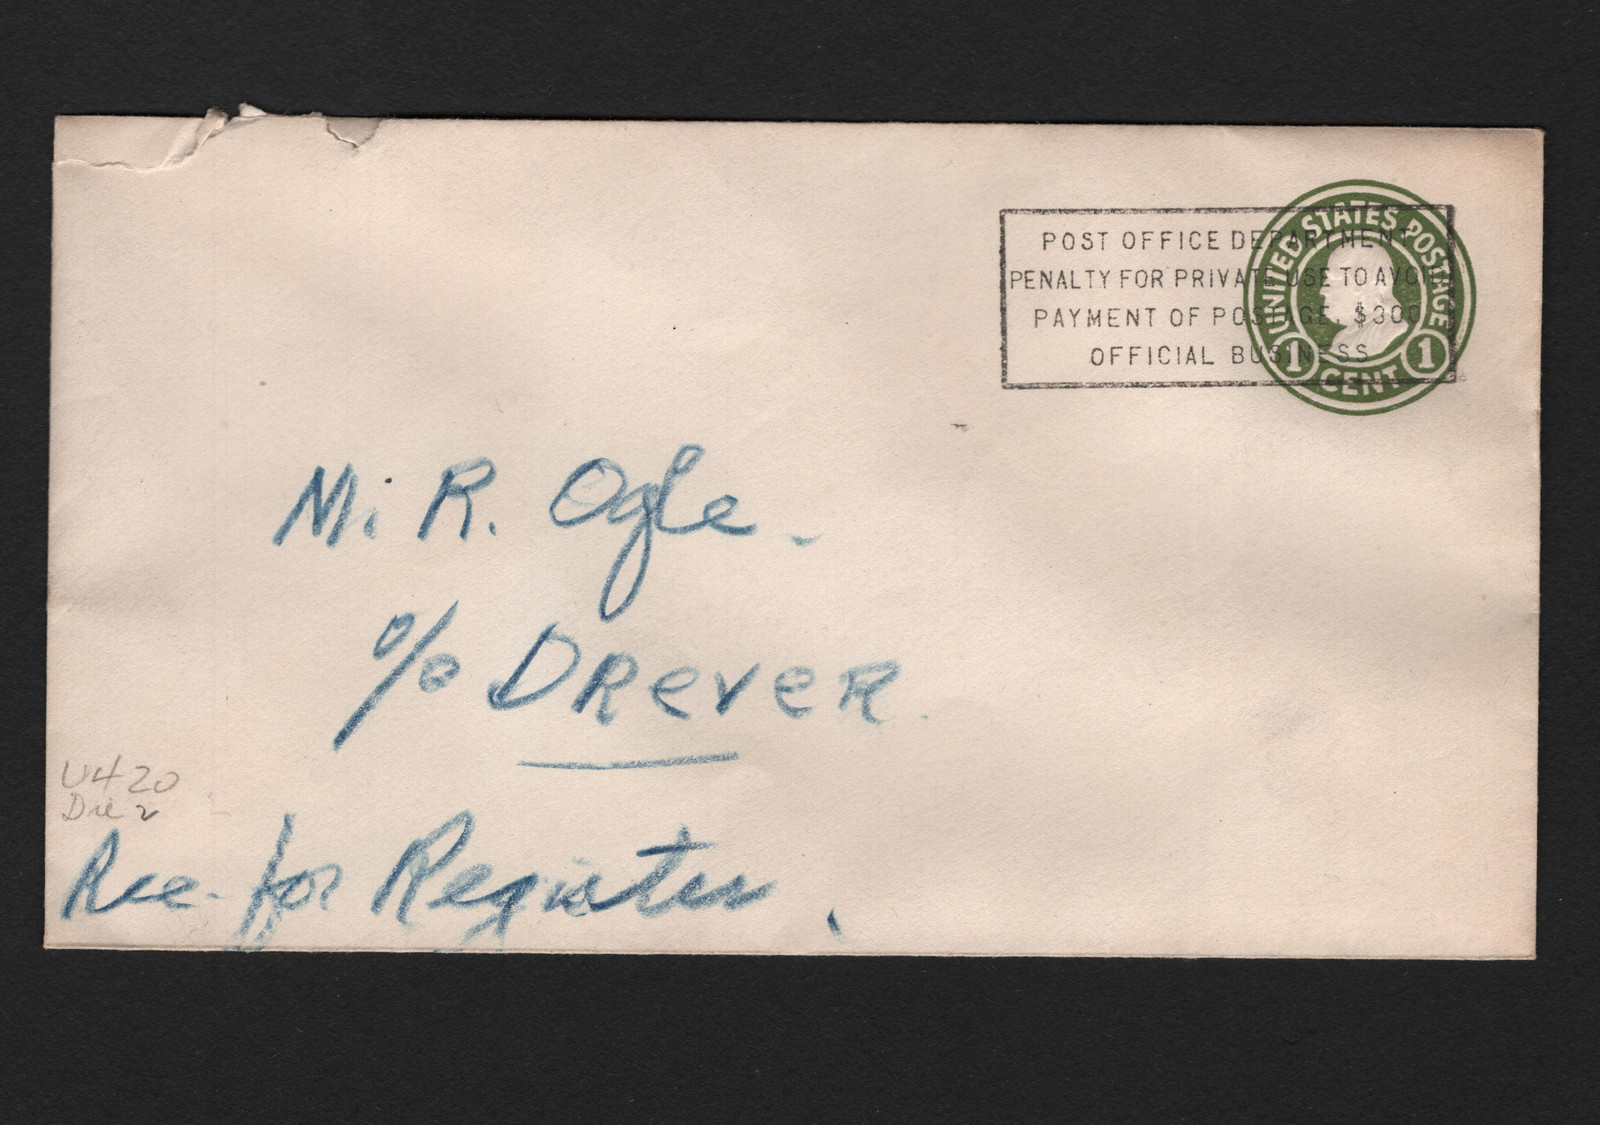 UNITED STATES POSTAGE
1 CENT 1
POST OFFICE DEPARTMENT
PENALTY FOR PRIVATE USE TO AVOID
PAYMENT OF POSTAGE, $300
OFFICIAL BUSINESS
Mr. R. Ogle.
c/o DReveR.
U420
Die 2
Rec. for Register